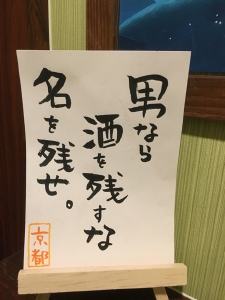 男なら
酒を残すな
名を残せ。
京都